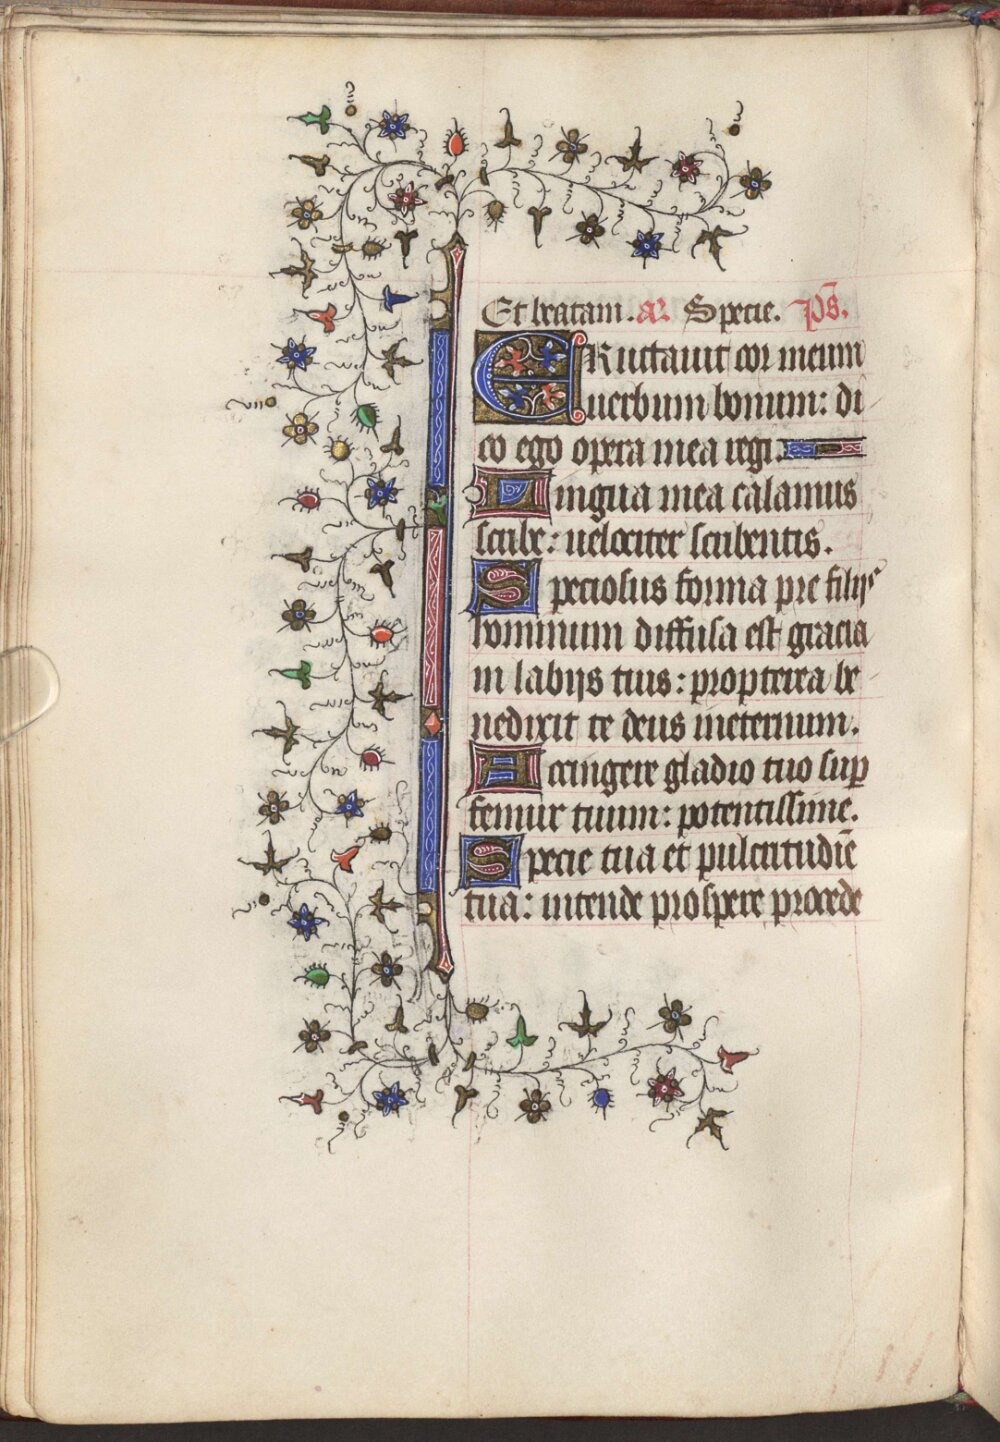 Et beatam. añ. Specie. p̄s.
ERuctauit cor meum
uerbum bonum: di
co ego opera mea regi.
Lingua mea calamus
scribe: uelociter scribentis.
Speciosus forma pre filijs
hominum diffusa est gracia
in labijs tuis: propterea be
nedixit te deus ineternum.
Accingere gladio tuo sup
femur tuum: potentissime.
Specie tua et pulcritudīe
tua: intende prospere procede